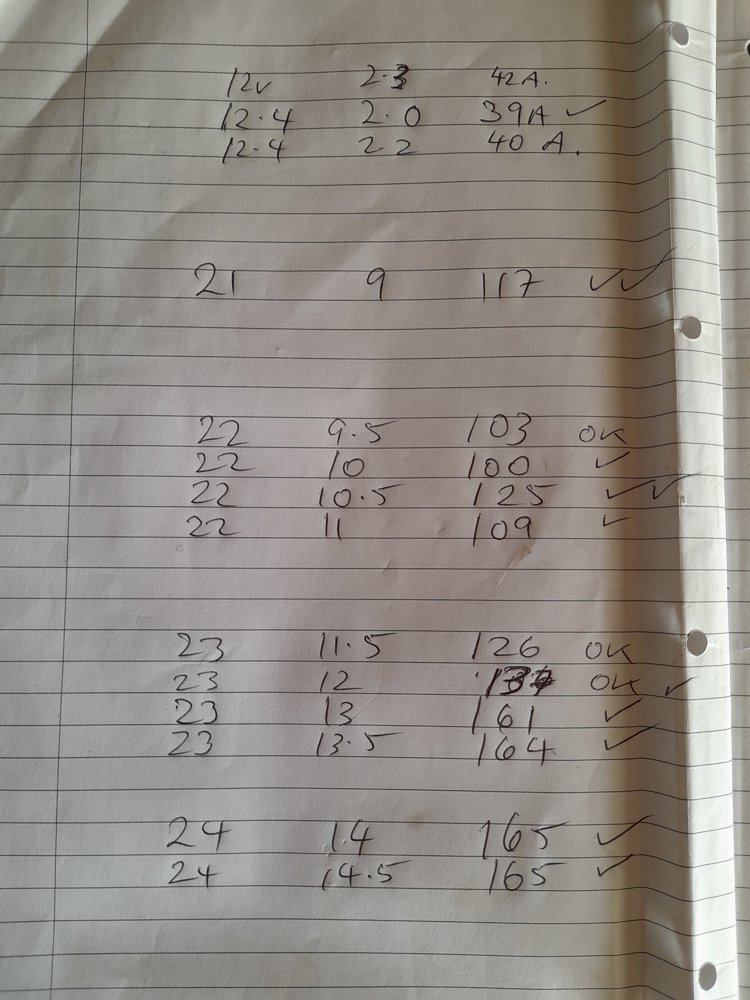 12v 2.3 42A.
12.4 2.0 39A ✓
12.4 2.2 40 A.
21 9 117 ✓✓
22 9.5 103 OK
22 10 100 ✓
22 10.5 125 ✓✓
22 11 109 ✓
23 11.5 126 OK
23 12 OK ✓
23 13 161 ✓
23 13.5 164 ✓
24 14 165 ✓
24 14.5 165 ✓